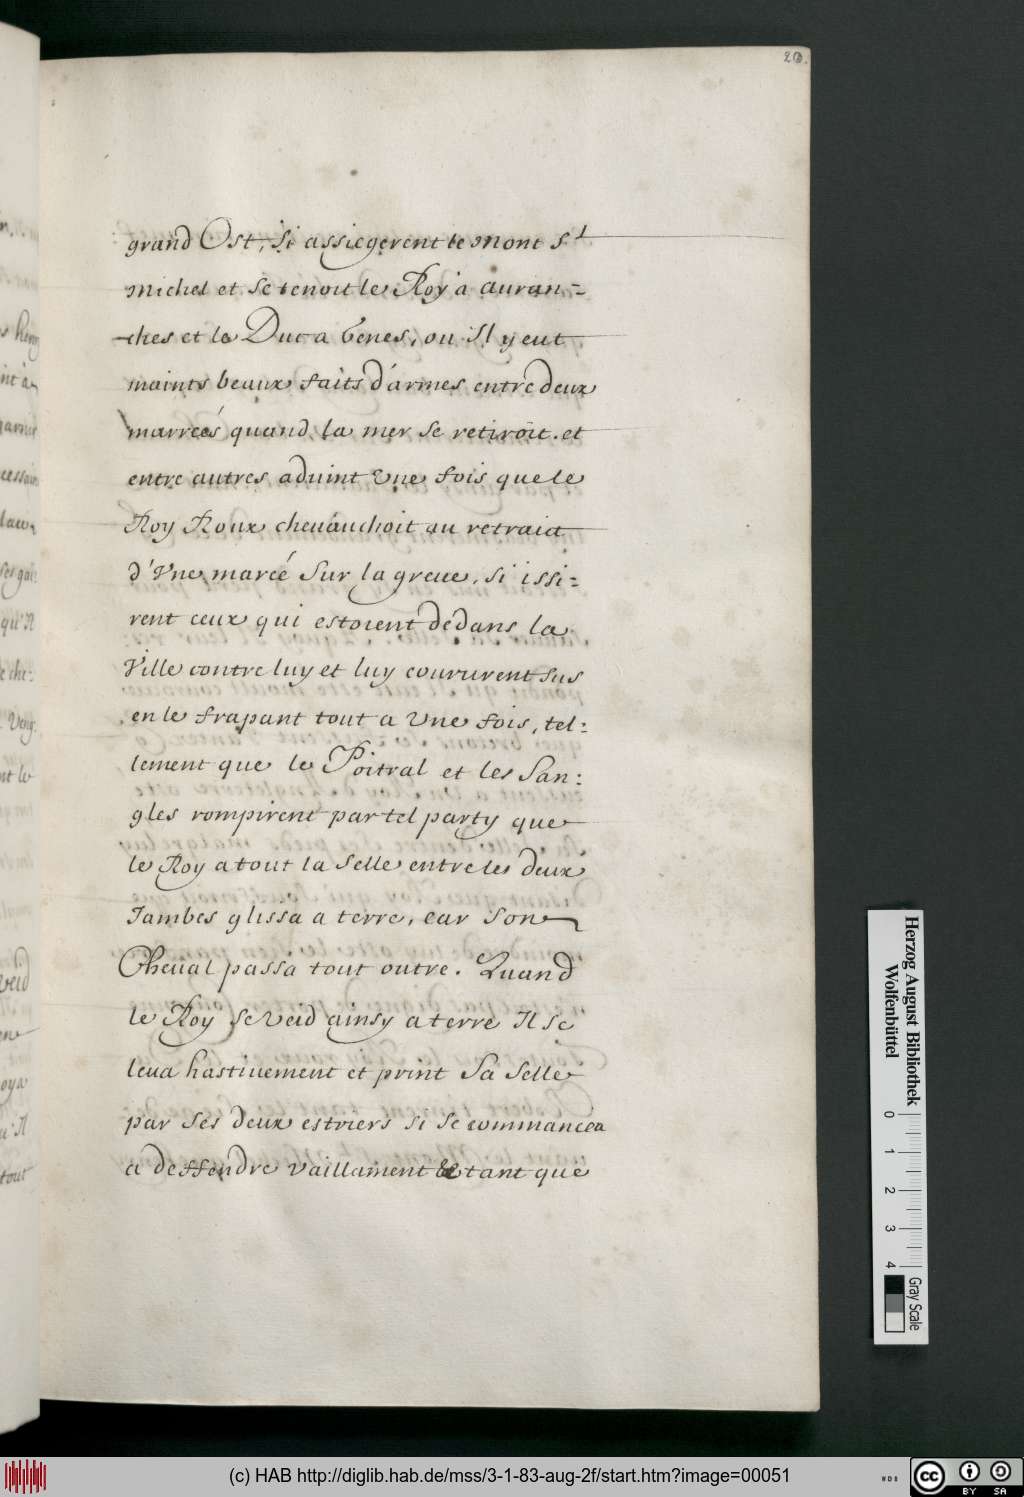 20.
grand Ost, Si assiegerent le Mont S^t
Michel et se tenoit le Roy a auran=
-ches et le Duc a Genes, ou Il y eut
maints beaux faits d'armes entre deux
marreés quand la mer se retiroit. et
entre autres aduint Vne fois que le
Roy Roux cheuauchoit au retraict
d'Vne mareé Sur la greue, Si issi=
rent ceux qui estoient dedans la
Ville contre luy et luy coururent sus
en le frapant tout a Vne fois, tel=
lement que le Poitral et les San=
gles rompirent par tel party que
le Roy a tout la Selle entre les deux
Jambes glissa a terre, car Son
Cheual passa tout outre. Quand
le Roy se Veid ainsy a terre Il se
leua hastiuement et print Sa Selle
par Ses deux estriers Si Se commancea
a deffendre vaillament & tant que
Herzog August Bibliothek
Wolfenbüttel
0 1 2 3 4
Gray Scale
(c) HAB http://diglib.hab.de/mss/3-1-83-aug-2f/start.htm?image=00051
WDB
cc BY SA